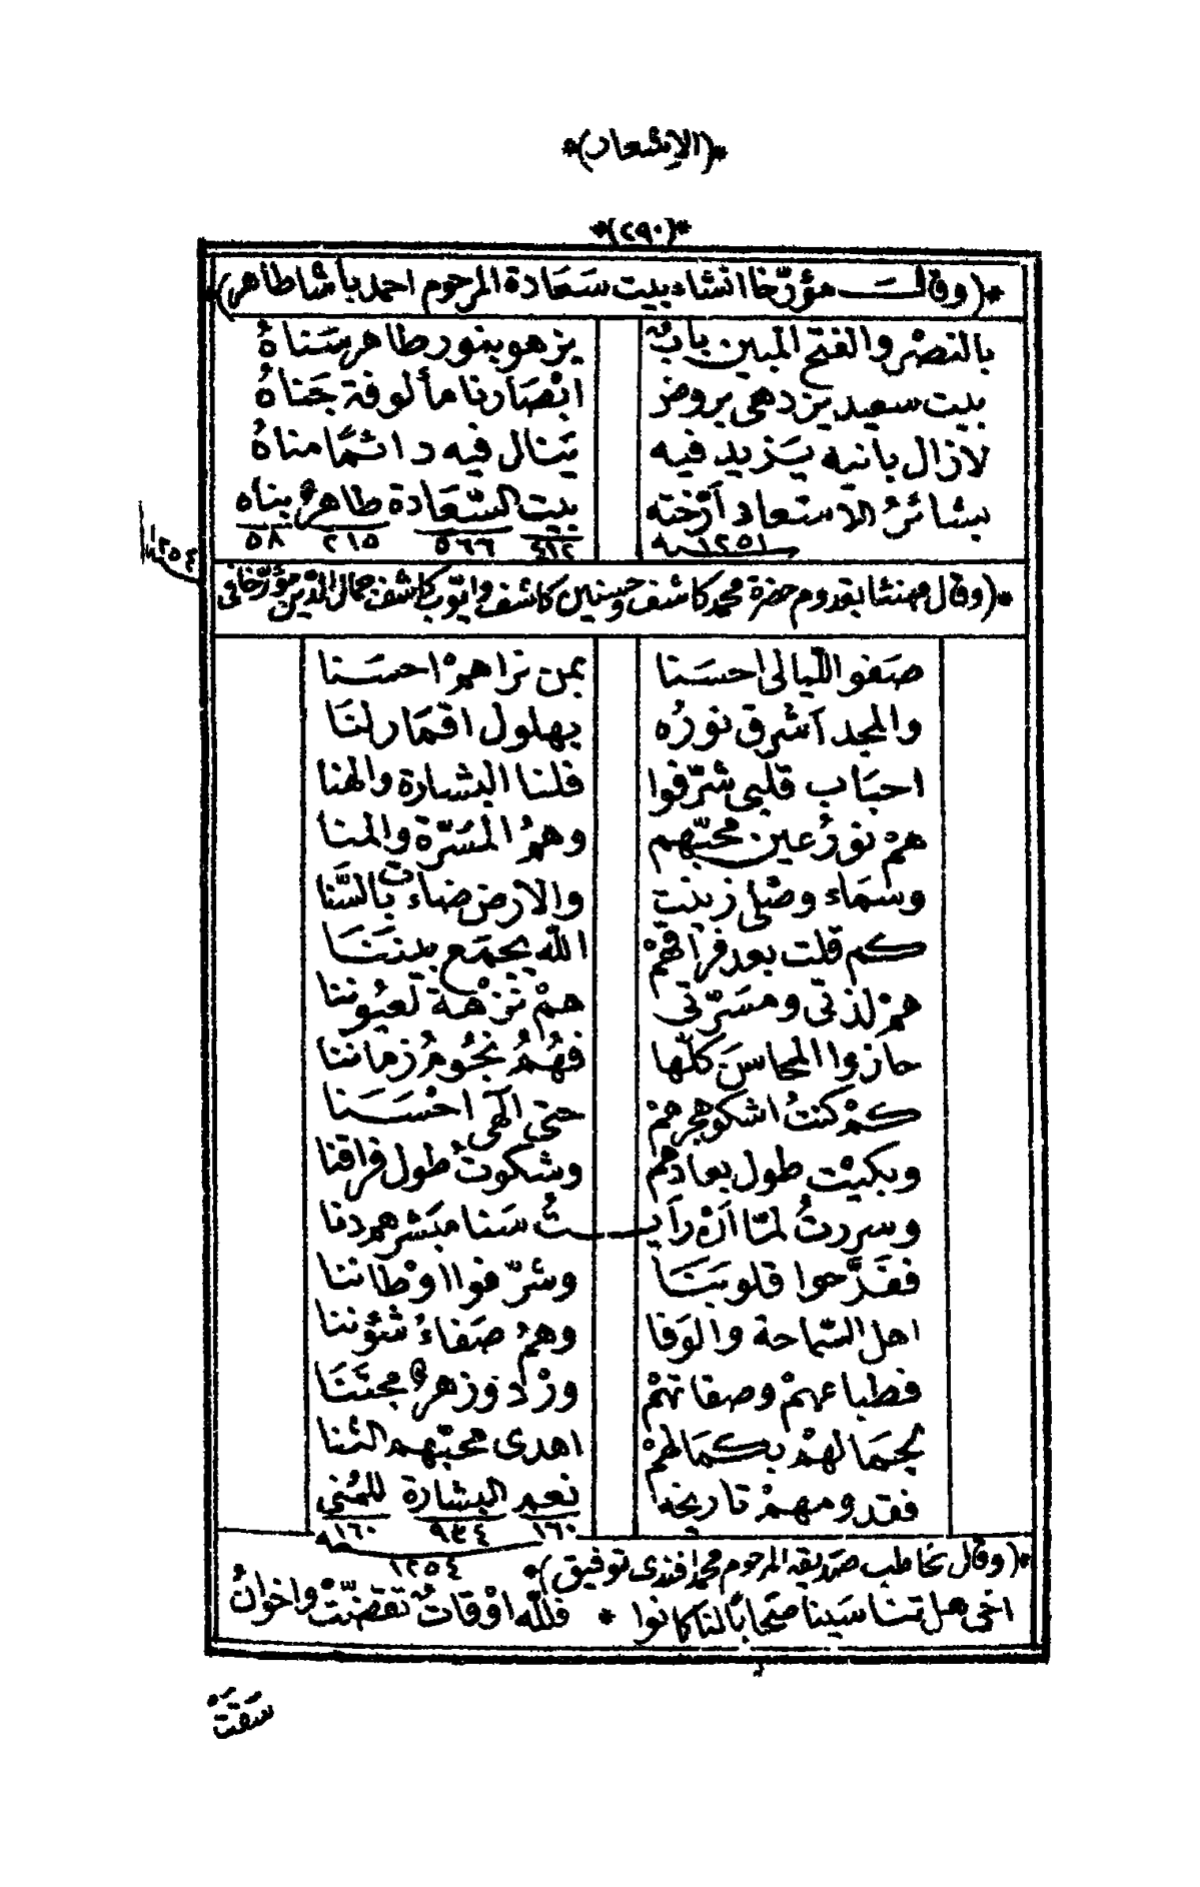 *(الاشعار)*
*(٢٩٠)*
*(وقال مؤرّخا انشاء بيت سَعَادة المرحوم احمد باشا طاهر)
بالنصْر والفتح المبين بابٌ يزهو بنور طاهر سَناهُ
بيت سعيد يزدهي بروض ابْصَارنا مألوفة جَناهُ
لازال بانيه يَزيد فيه يَنال فيه دائمًا مناهُ
بشائرُ الاستعاد أرّخته بيت السّعَادة طاهرٌ بناه
١٢٥١ ٤١٢ ٥٦٦ ٢١٥ ٥٨
١٢٥٤
*(وقال مهنئا بقدوم حضرة محمد كاشف وحسنين كاشف وايّوب كاشف جمال الدّين مؤرّخا في
صَفو اللّيالى احسَنا بمن نراهمْ احسَنا
والمجد اشرق نورُه بهلول اقمَار لنَا
احبَاب قلبي شرّفوا فلنا البشارة والهنا
همْ نورُ عين محبّهم وهمُ المسَرّة والمنا
وسَماء وصْلي زينت والارض ضاءت بالسّنا
كم قلت بعد فراقهمْ اللّه يجمَع بيننَا
همْ لذتي ومسَرّتي همْ نزْهة لعيُوننا
حازوا المحاسَن كلّها فهُمُ نجُومُ زماننا
كمْ كنتُ اشكو هجرهمْ حتى الٓهي احْسَنا
وبكيْت طول بعادهم وشكوتُ طول فراقنا
وسررتُ لمّا انْ رَأيتُ سَنا مبَشرهم دنا
فقَدَّحوا قلوبَنَا وشرّفوا اوْطاننا
اهل السّماحة والوَفا وهمُ صَفاءُ شئوننا
فطباعهمْ وصفاتهمْ ورْد وزهرٌ مجتَنَا
بجمَالهمْ بكمَالهمْ اهدى محبّهم الثنا
فقدومهمْ تاريخه نعم البشارة للمُنى
١٦٠ ٩٣٤ ١٦٠
١٢٥٤
*(وقال يخاطب صَديقه المرحوم محمد افندى توفيق)*
اخى هل تناسَينا صَحابًا لنا كانوا * فللّه اوْقاتٌ تقضّتْ واخوانُ
سَقَتَ